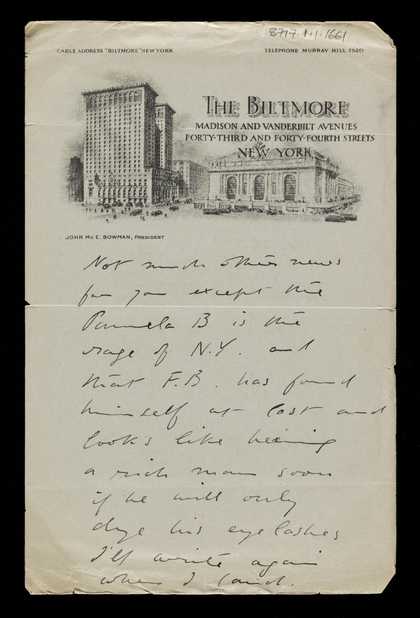 8717.1.1.1661
CABLE ADDRESS "BILTMORE" NEW YORK
TELEPHONE MURRAY HILL 7920
THE BILTMORE
MADISON AND VANDERBILT AVENUES
FORTY-THIRD AND FORTY-FOURTH STREETS
NEW YORK
JOHN McE. BOWMAN, PRESIDENT
Not much other news
for you except the
Pamela B is the
rage of N.Y. and
that F.B. has found
himself at last and
looks like being
a rich man soon
if he will only
dye his eyelashes
I'll write again
when I land.